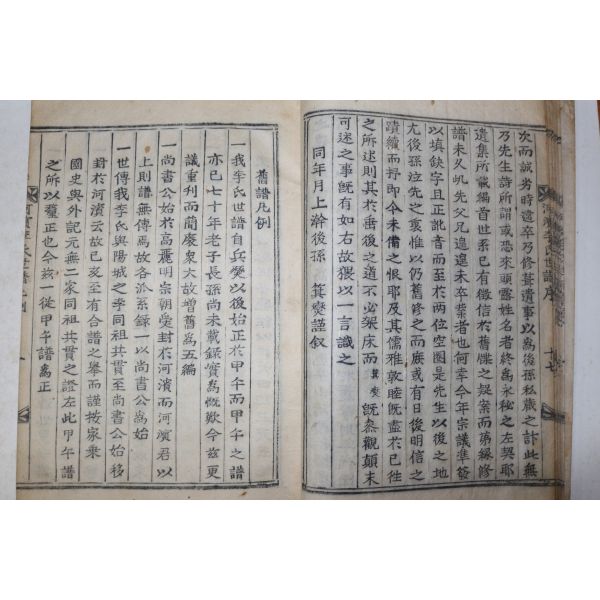 次而誠劣時遑卒乃修葺遺事以爲後孫私藏之計此無
乃先生詩所謂或恐來頭露姓名者終爲永秘之左契耶
遺集所載編首世系已有徵信於舊牒之疑案而第緣修
譜未久夙先父兄遑遑未卒業者也何幸今年宗議準發
以填缺字且正訛書而至於兩位空圈是先生以後之地
尤後孫泣先之衷惟以仍舊修之而庶或有日後明信之
蹟續而抒即今未備之恨耶及其儒雅敦睦旣盡於已徃
之所述則其於垂後之道不必架床而箕奭旣叅觀顚末
可述之事旣有如右故猥以一言識之
同年月上澣後孫 箕奭謹叙
氏譜序
舊譜凡例
一我李氏世譜自兵燹以後始正於甲午而甲午之譜
亦已七十年老子長孫尚未載錄實爲慨歎今玆更
議重刋而簡慶衆大故增舊爲五編
一尚書公始於高麗明宗朝受封於河濱而河濱君以
上則譜無傳焉故各派系録一以尚書公爲始
一世傳我李氏與陽城之李同祖共貫至尚書公始移
封於河濱云故已亥至有合譜之擧而謹按家乘
國史與外記元無二家同祖共貫之證左此甲午譜
之所以釐正也今玆一從甲午譜爲正